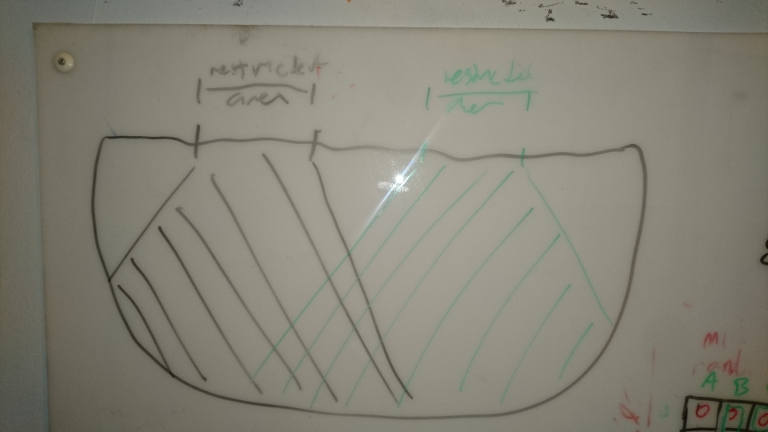 restricted
area
restricted
area
A B
0